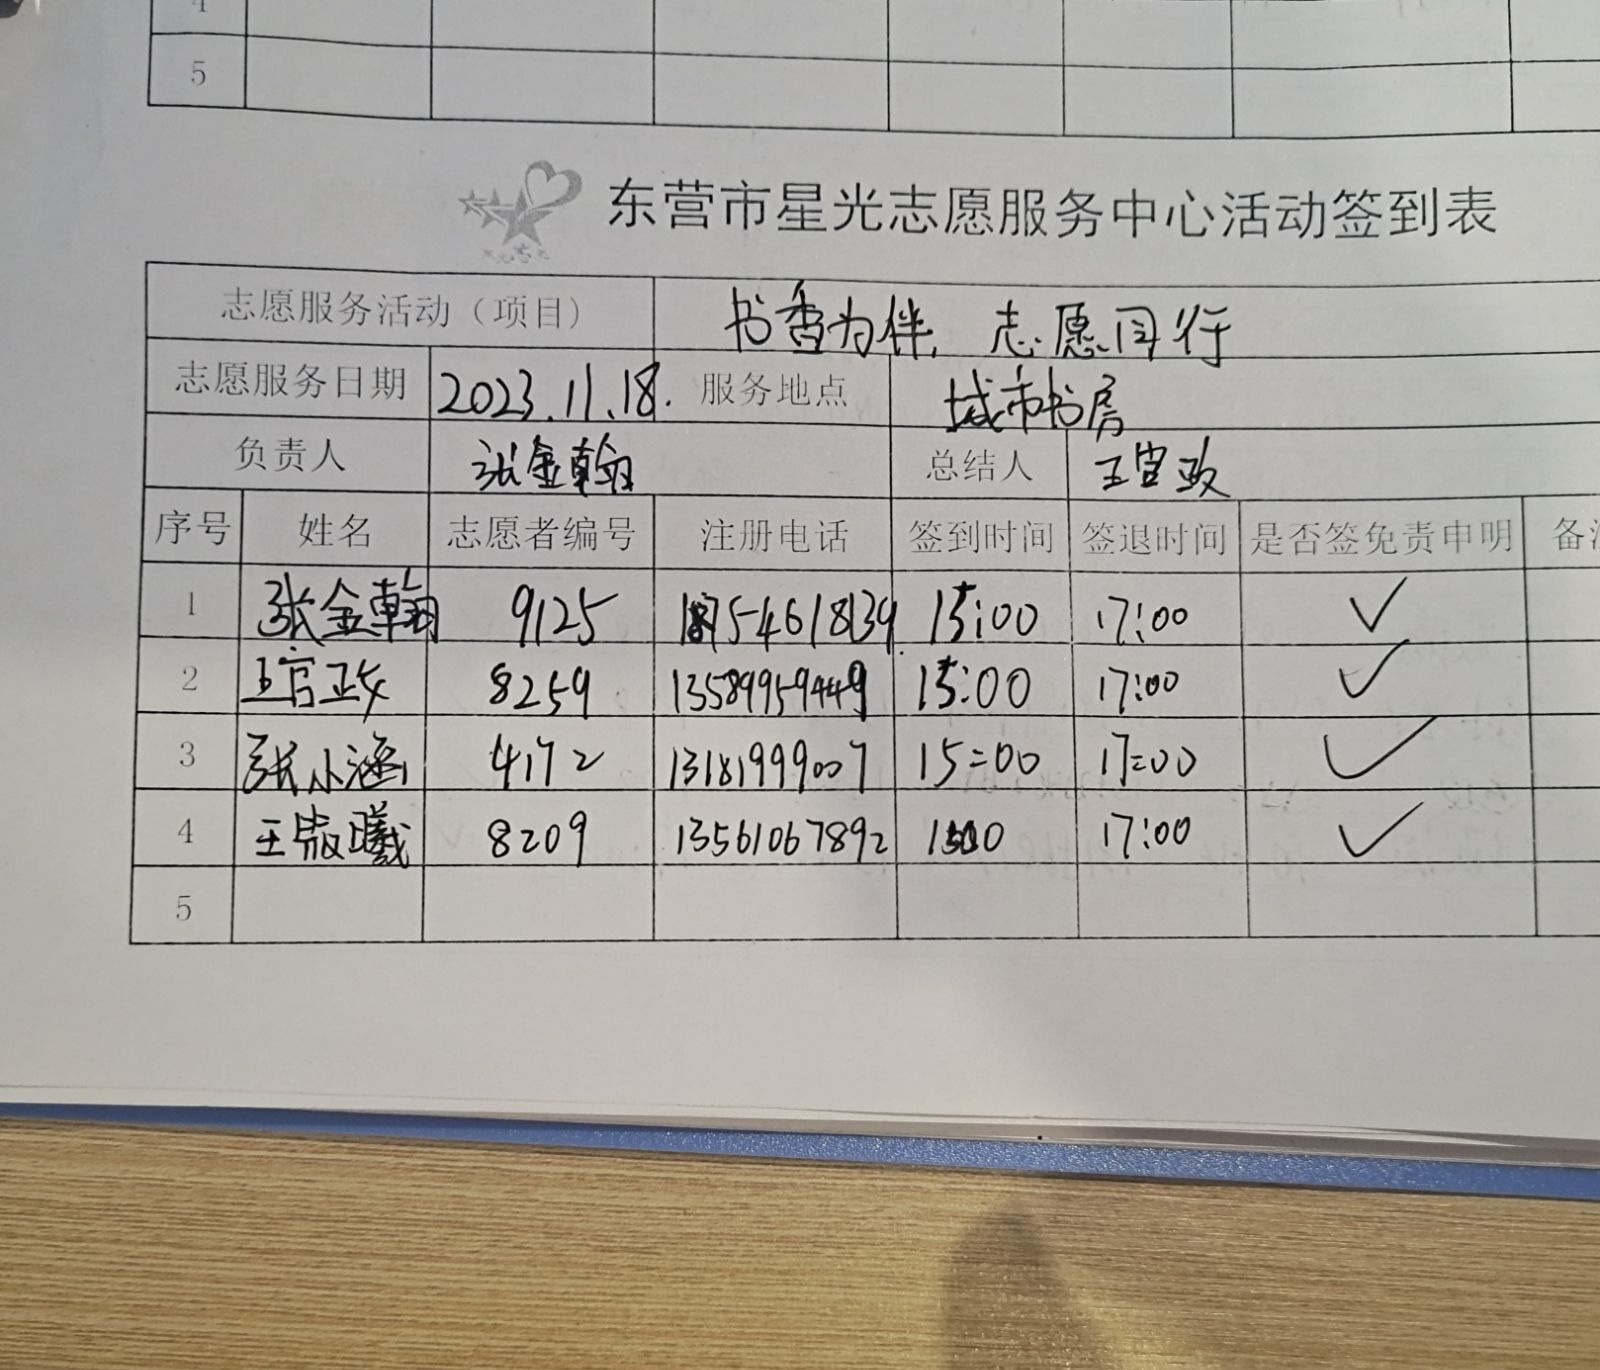 5
东营市星光志愿服务中心活动签到表
志愿服务活动（项目） 书香为伴，志愿同行
志愿服务日期 2023.11.18. 服务地点 城市书房
负责人 张金翰 总结人 王宣政
序号 姓名 志愿者编号 注册电话 签到时间 签退时间 是否签免责申明 备
1 张金翰 9125 18754618139 15:00 17:00 ✓
2 8259 13589959449 15:00 17:00 ✓
3 张小涵 4172 13181999007 15:00 17:00 ✓
4 王 曦 8209 13561067892 17:00 ✓
5